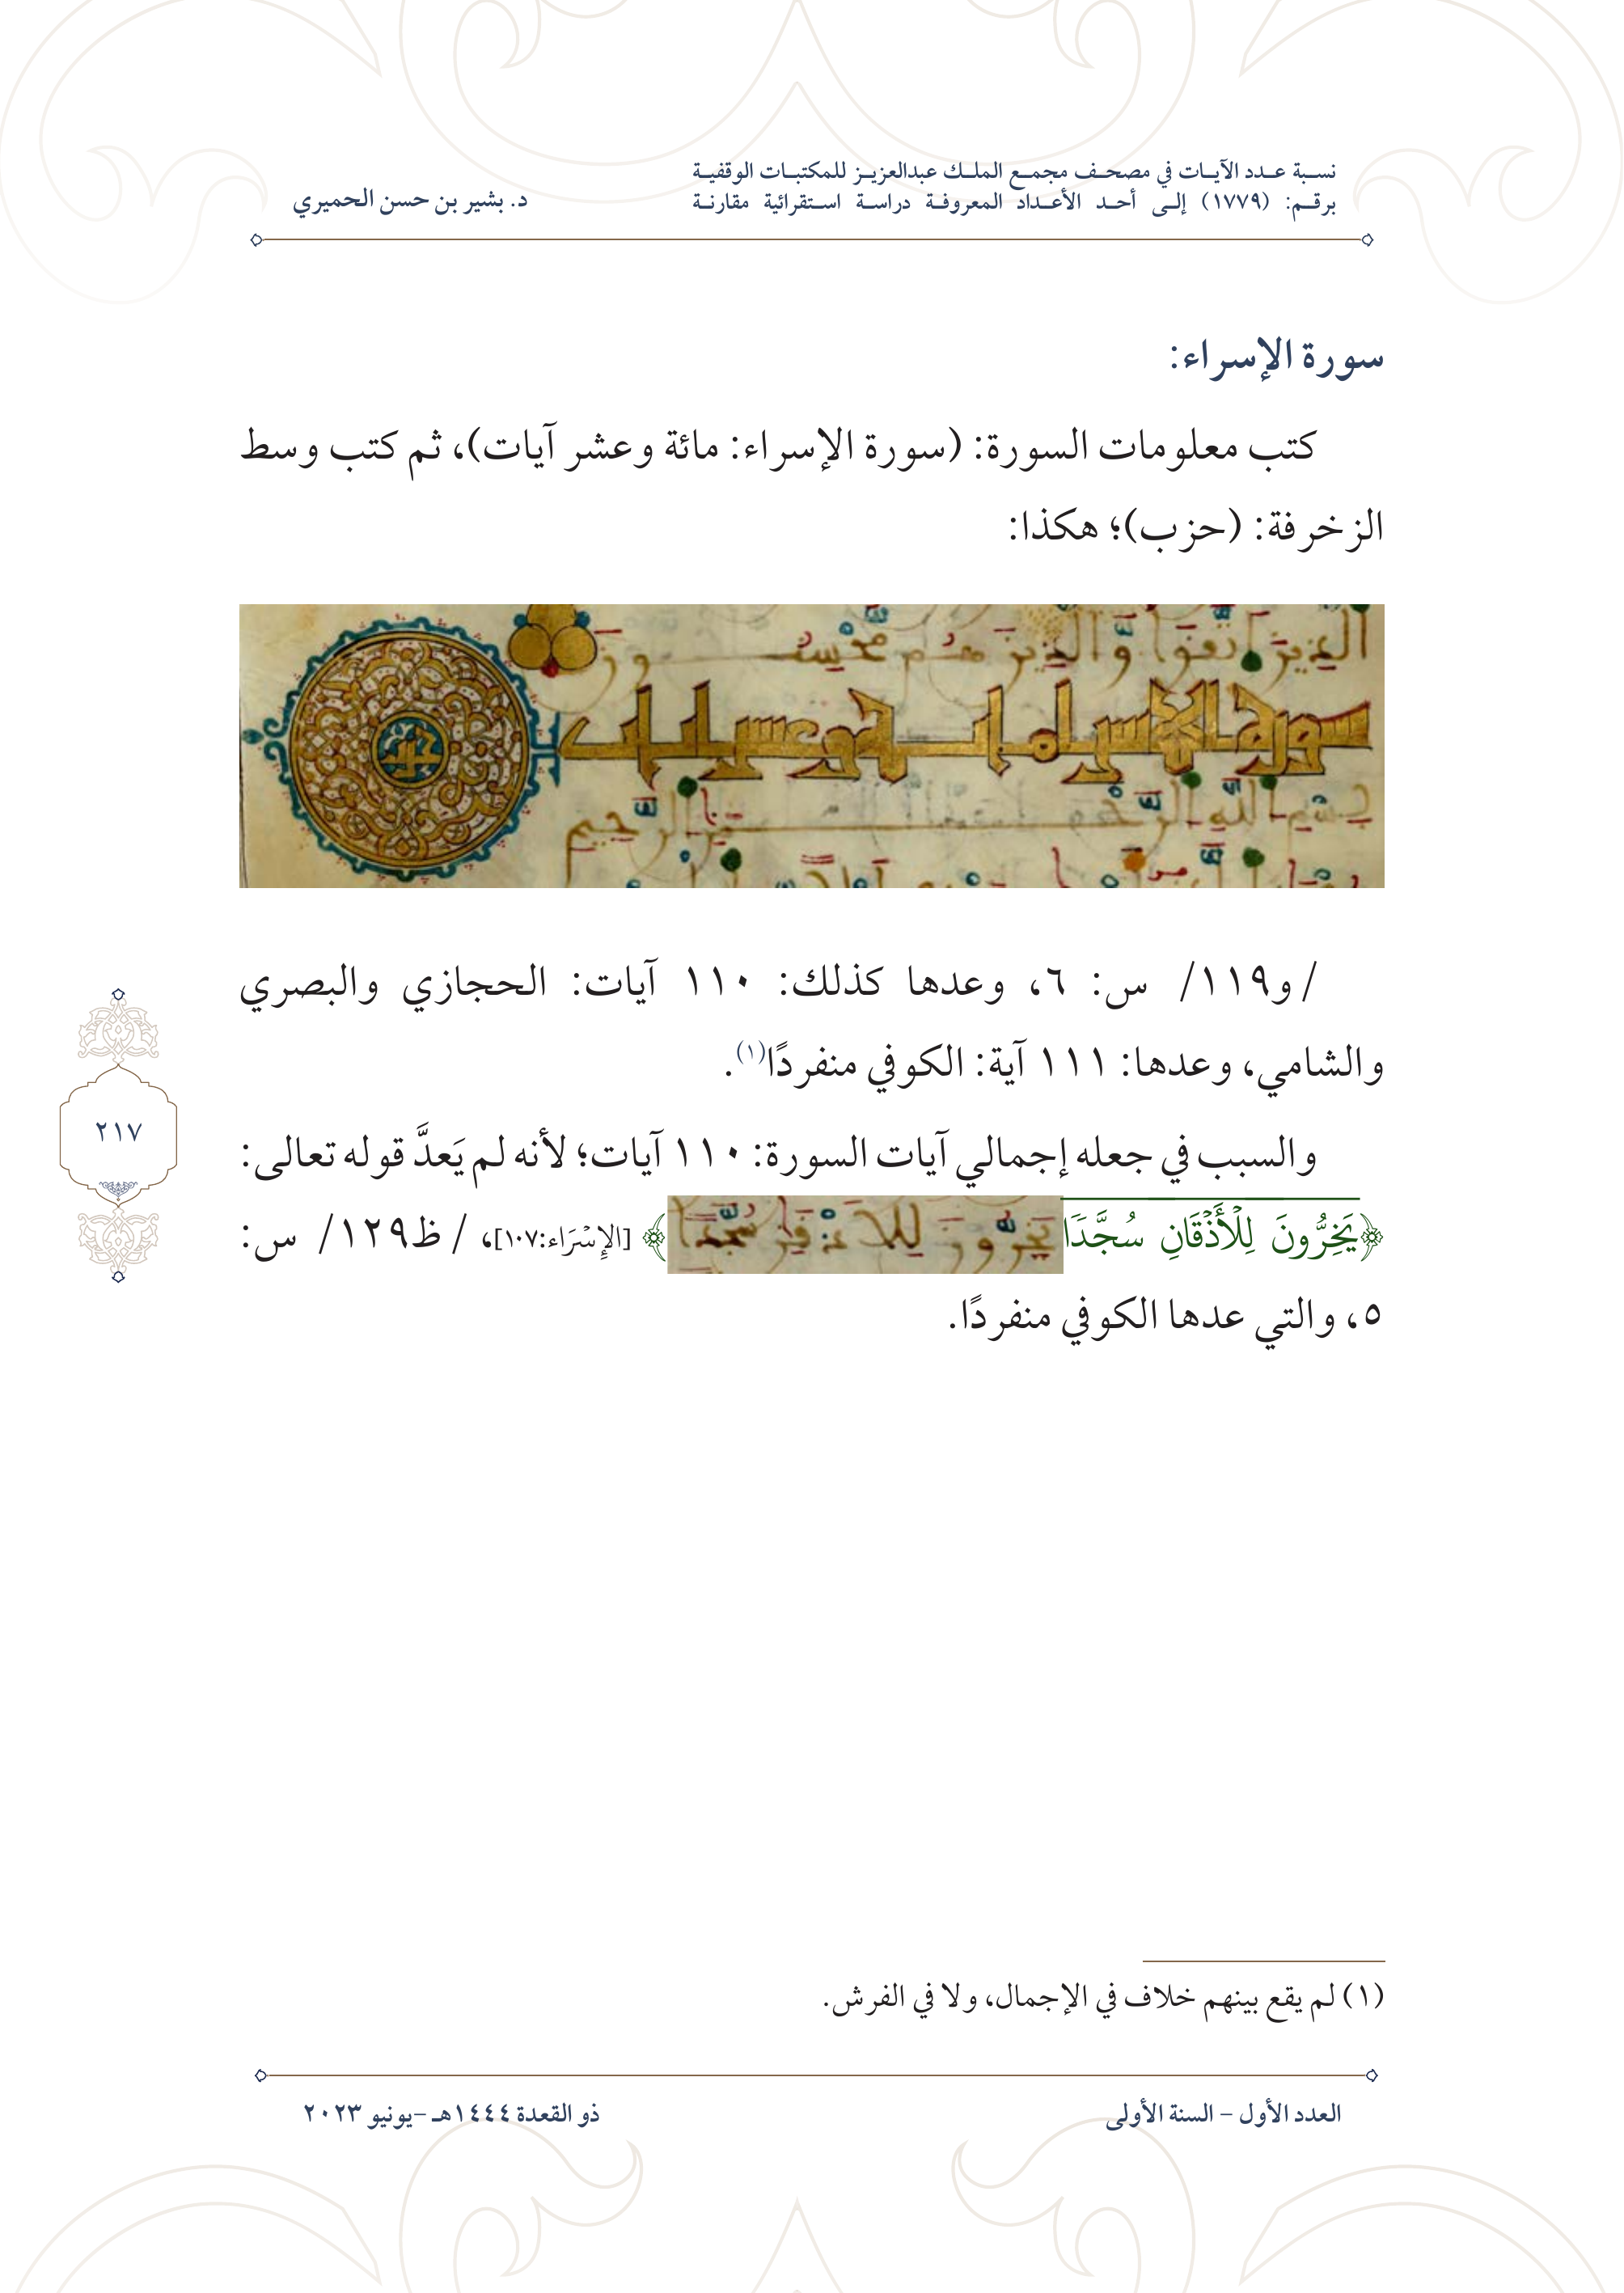 نسبة عدد الآيات في مصحف مجمع الملك عبدالعزيز للمكتبات الوقفية
برقم: (١٧٧٩) إلى أحد الأعداد المعروفة دراسة استقرائية مقارنة
د. بشير بن حسن الحميري
سورة الإسراء:
كتب معلومات السورة: (سورة الإسراء: مائة وعشر آيات)، ثم كتب وسط
الزخرفة: (حزب)؛ هكذا:
الذين اتقوا والذين هم محسنون
سورة الإسراء مائة وعشر آيات
بسم الله الرحمن الرحيم
/و١١٩/ س: ٦، وعدها كذلك: ١١٠ آيات: الحجازي والبصري
والشامي، وعدها: ١١١ آية: الكوفي منفردًا(١).
والسبب في جعله إجمالي آيات السورة: ١١٠ آيات؛ لأنه لم يَعدَّ قوله تعالى:
﴿يَخِرُّونَ لِلْأَذْقَانِ سُجَّدًا يخرون للاذقن سجدا﴾ [الإِسْرَاء:١٠٧]، /ظ١٢٩/ س:
٥، والتي عدها الكوفي منفردًا.
٢١٧
(١) لم يقع بينهم خلاف في الإجمال، ولا في الفرش.
العدد الأول – السنة الأولى
ذو القعدة ١٤٤٤هـ –يونيو ٢٠٢٣